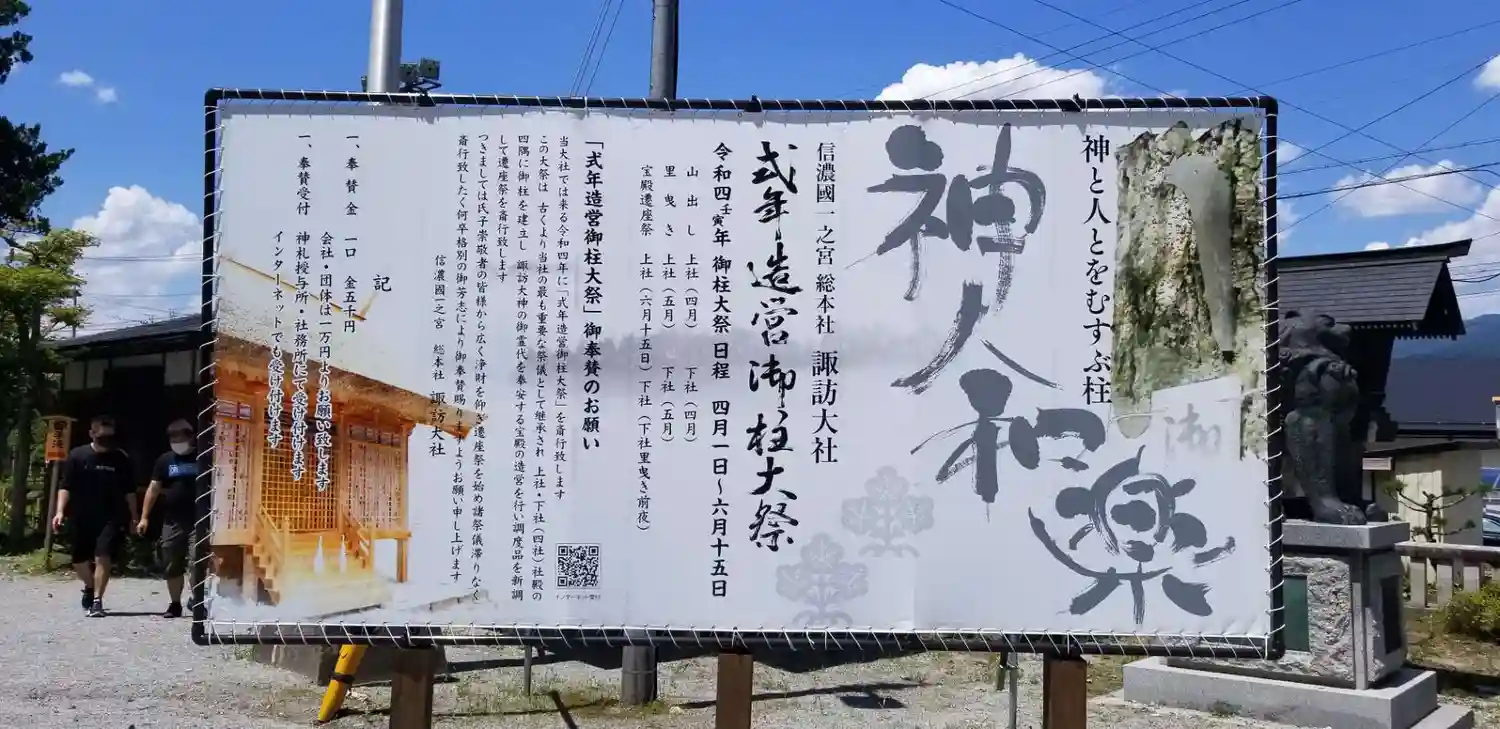 神と人とをむすぶ柱
神人和楽
御
信濃國一之宮 総本社 諏訪大社
式年造営御柱大祭
令和四壬寅年 御柱大祭 日程 四月一日～六月十五日
山出し 上社（四月） 下社（四月）
里曳き 上社（五月） 下社（五月）
宝殿遷座祭 上社（六月十五日）下社（下社里曳き前夜）
「式年造営御柱大祭」御奉賛のお願い
当大社では来る令和四年に「式年造営御柱大祭」を斎行致します
この大祭は 古くより当社の最も重要な祭儀として継承され 上社・下社（四社）社殿の
四隅に御柱を建立し 諏訪大神の御霊代を奉安する宝殿の造営を行い調度品を新調
して遷座祭を斎行致します
つきましては氏子崇敬者の皆様から広く浄財を仰ぎ遷座祭を始め諸祭儀滞りなく
斎行致したく何卒格別の御芳志により御奉賛賜りますようお願い申し上げます
信濃國一之宮 総本社 諏訪大社
記
一、奉賛金 一口 金五千円
会社・団体は一万円よりお願い致します
一、奉賛受付 神札授与所・社務所にて受け付けます
インターネットでも受け付けます
インターネット受付